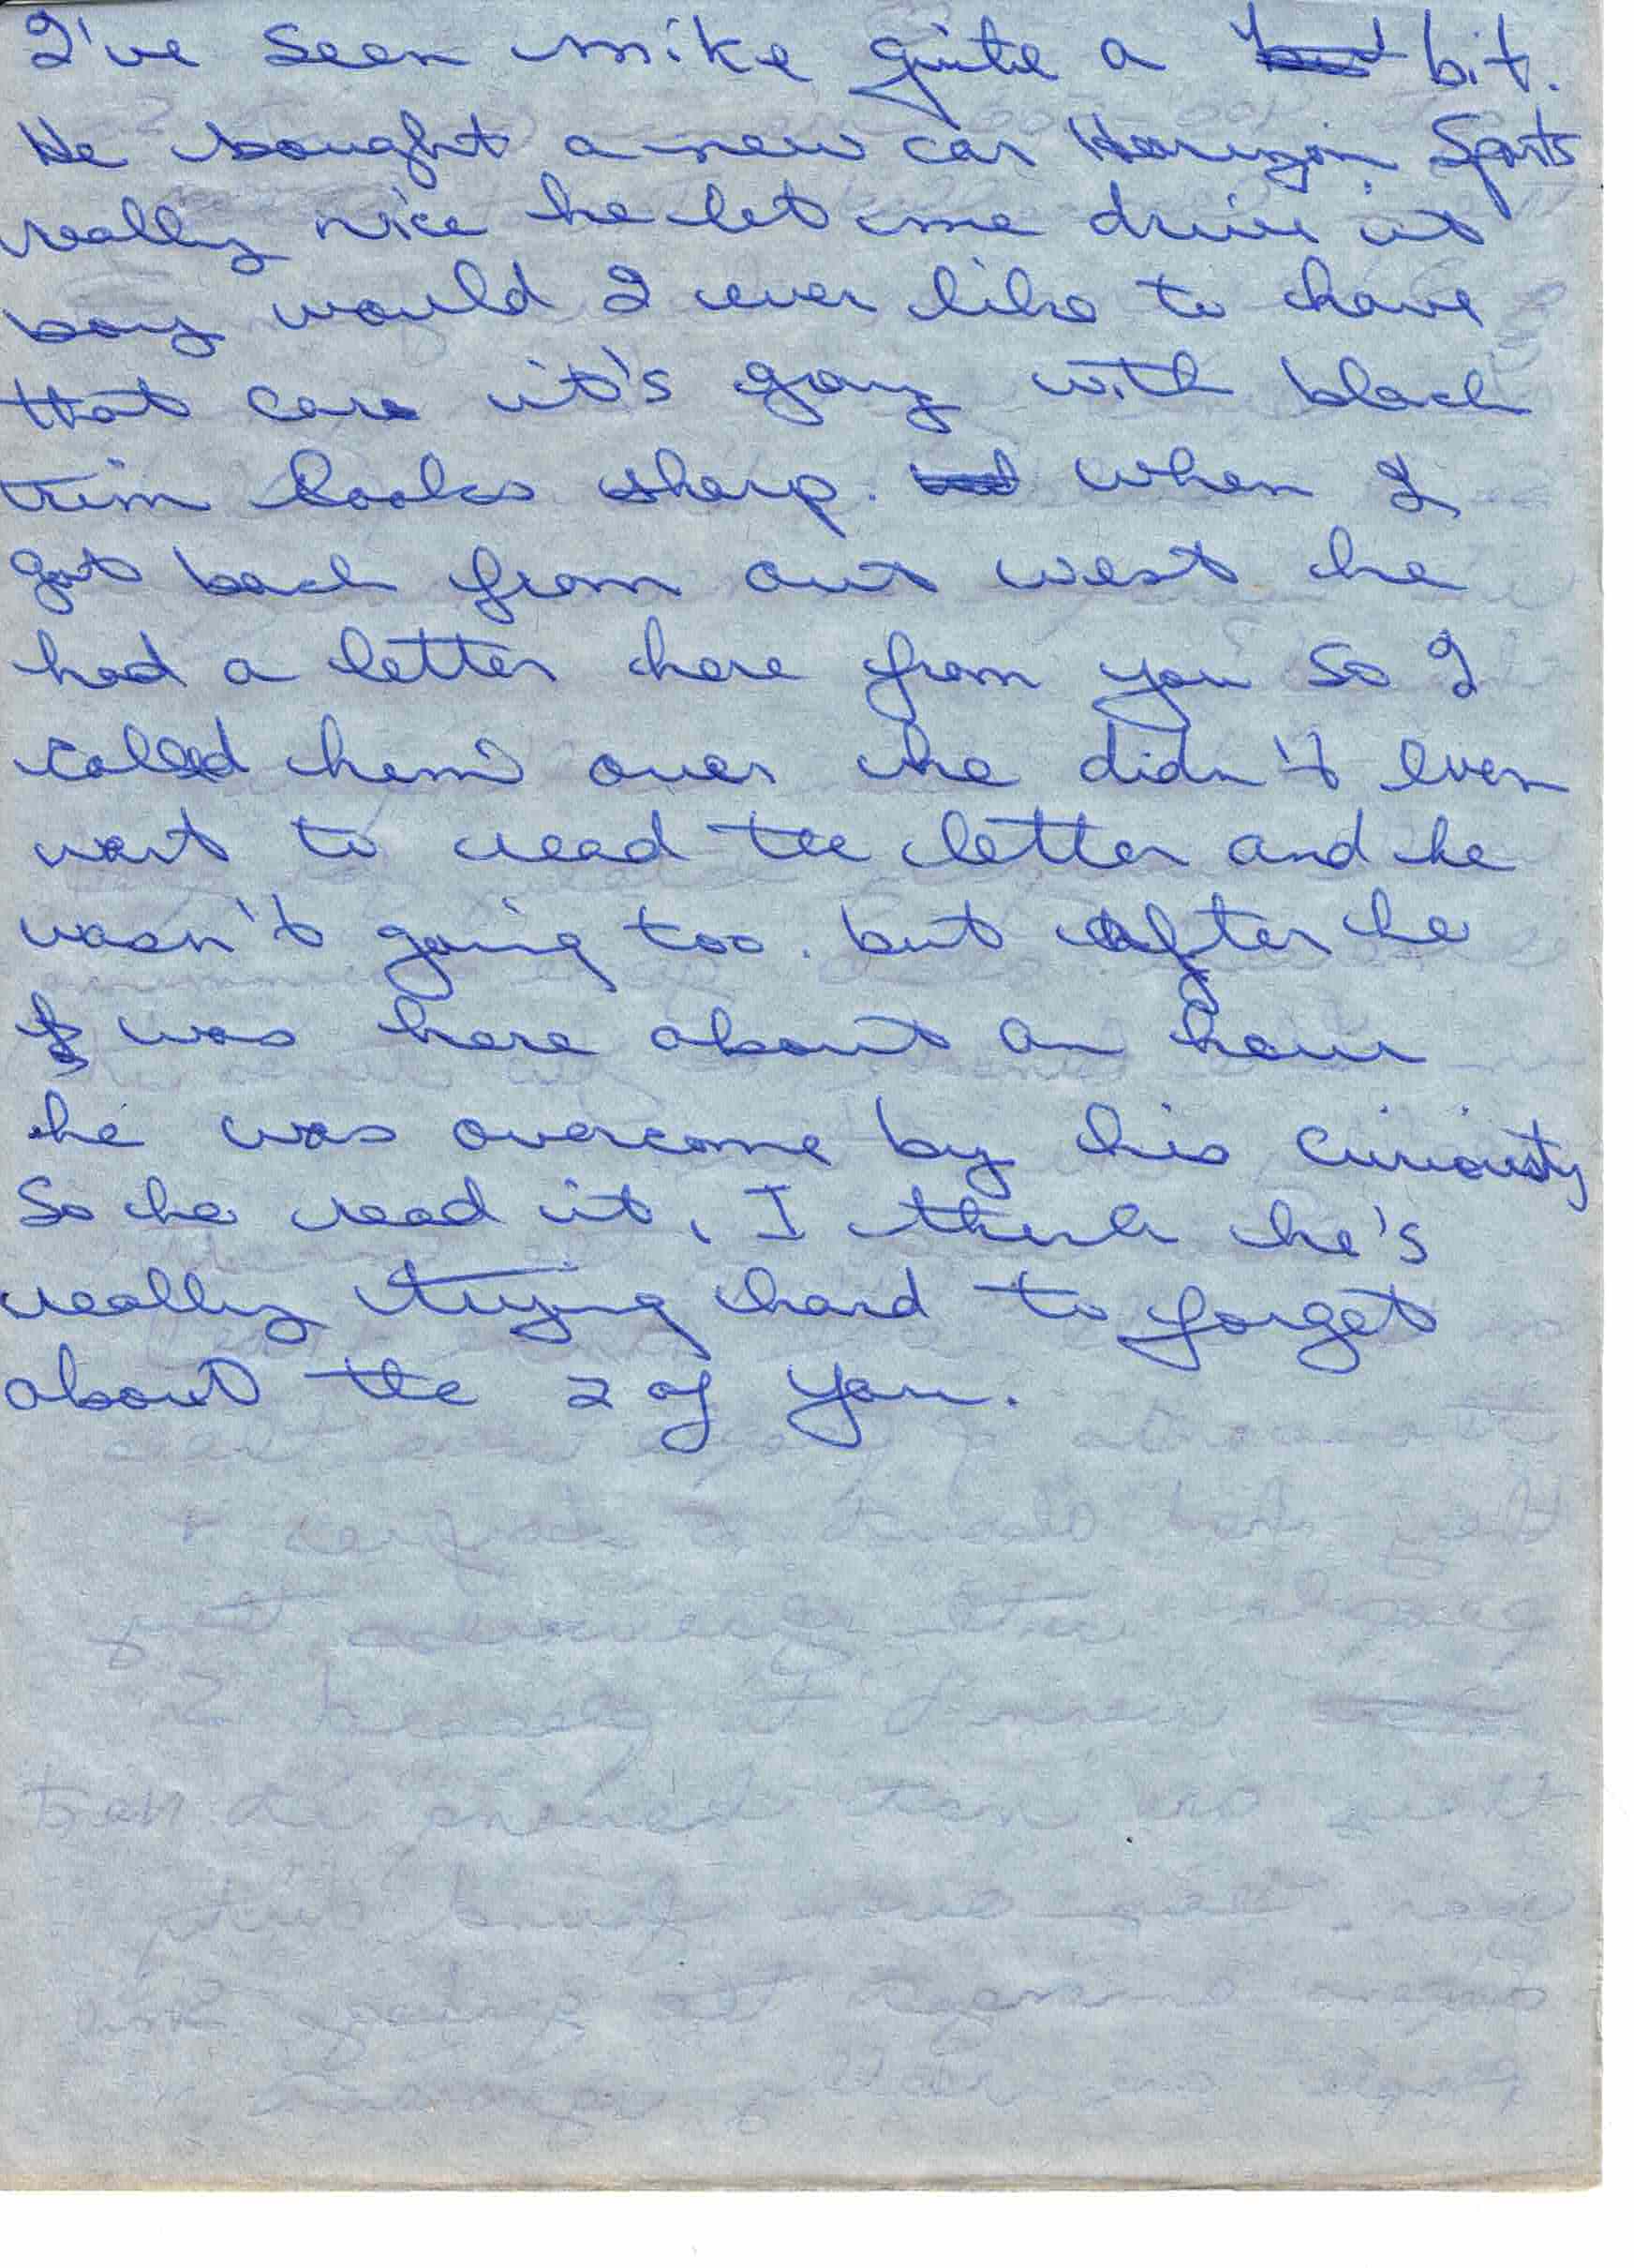 I've seen mike quite a bit.
He bought a new car Horizon Sports
really nice he let me drive it
boy would I ever like to have
that car it's gray with black
trim looks sharp. when I
got back from out west he
had a letter here from you so I
called him over he didn't even
want to read the letter and he
wasn't going too. but after he
was here about an hour
he was overcome by his curiousty
So he read it, I think he's
really trying hard to forget
about the 2 of you.